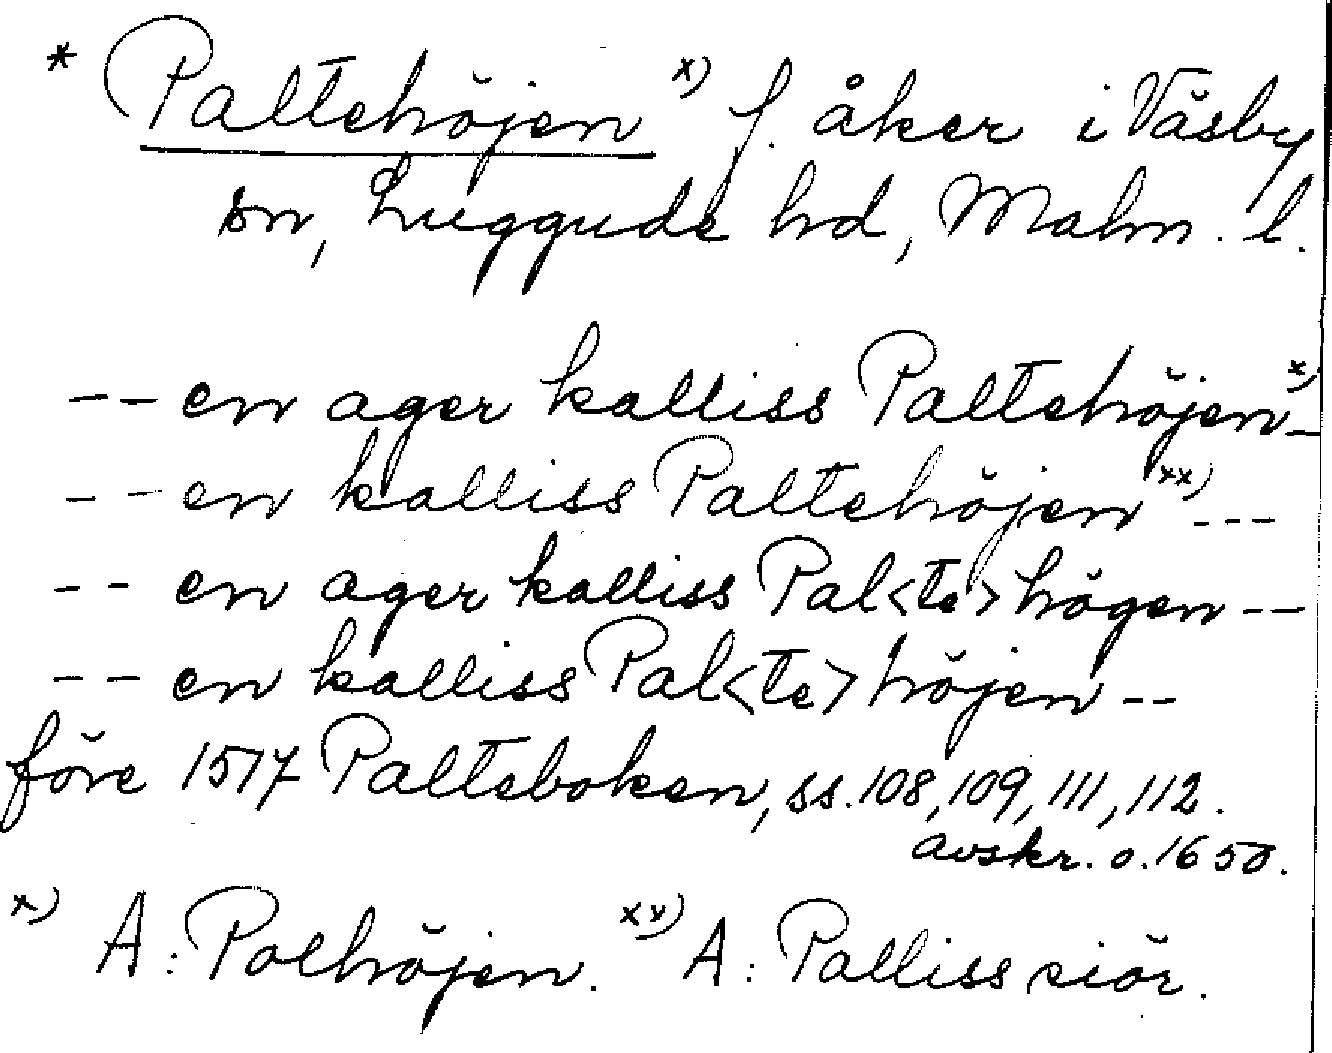 * Paltehöjen x) f. åker i Väsby
sn, Luggude hd, Malm. l.
-- en ager kalliss Paltehöjen x) -
-- en kalliss Paltehöjen xx) ---
-- en ager kalliss Pal<te>högen --
-- en kalliss Pal<te>höjen --
före 1517 Palteboken, ss. 108, 109, 111, 112.
avskr. o. 1650.
x) A: Polhöjen. xx) A: Palliss siör.